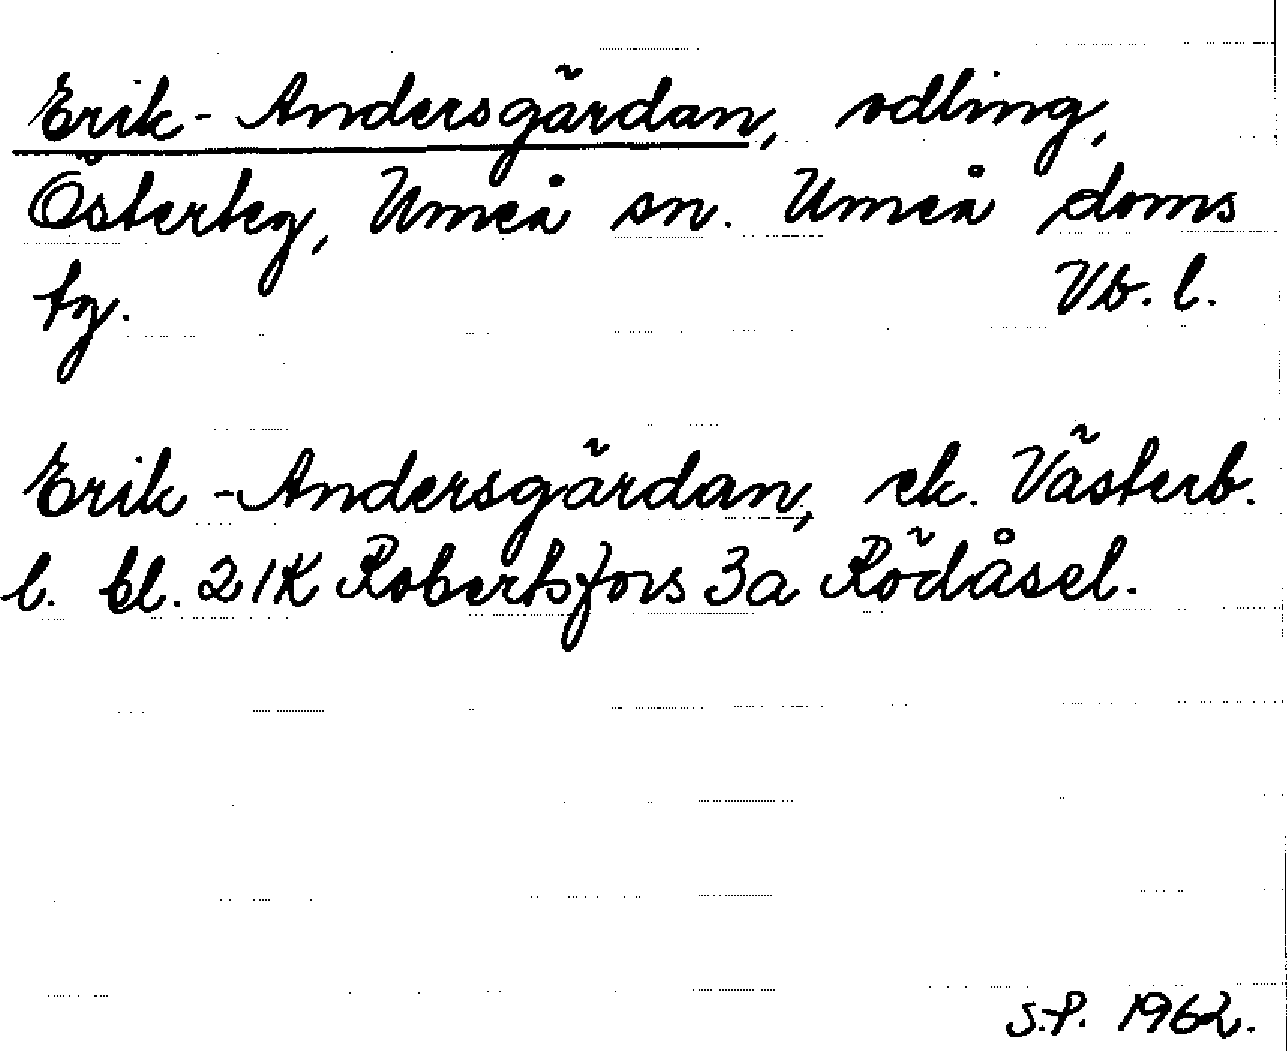 Erik-Andersgärdan, odling,
Österteg, Umeå sn. Umeå doms
tg. Vb. l.
Erik-Andersgärdan, ek. Västerb.
l. bl. 21K Robertsfors 3a Rödåsel.
S.P. 1962.